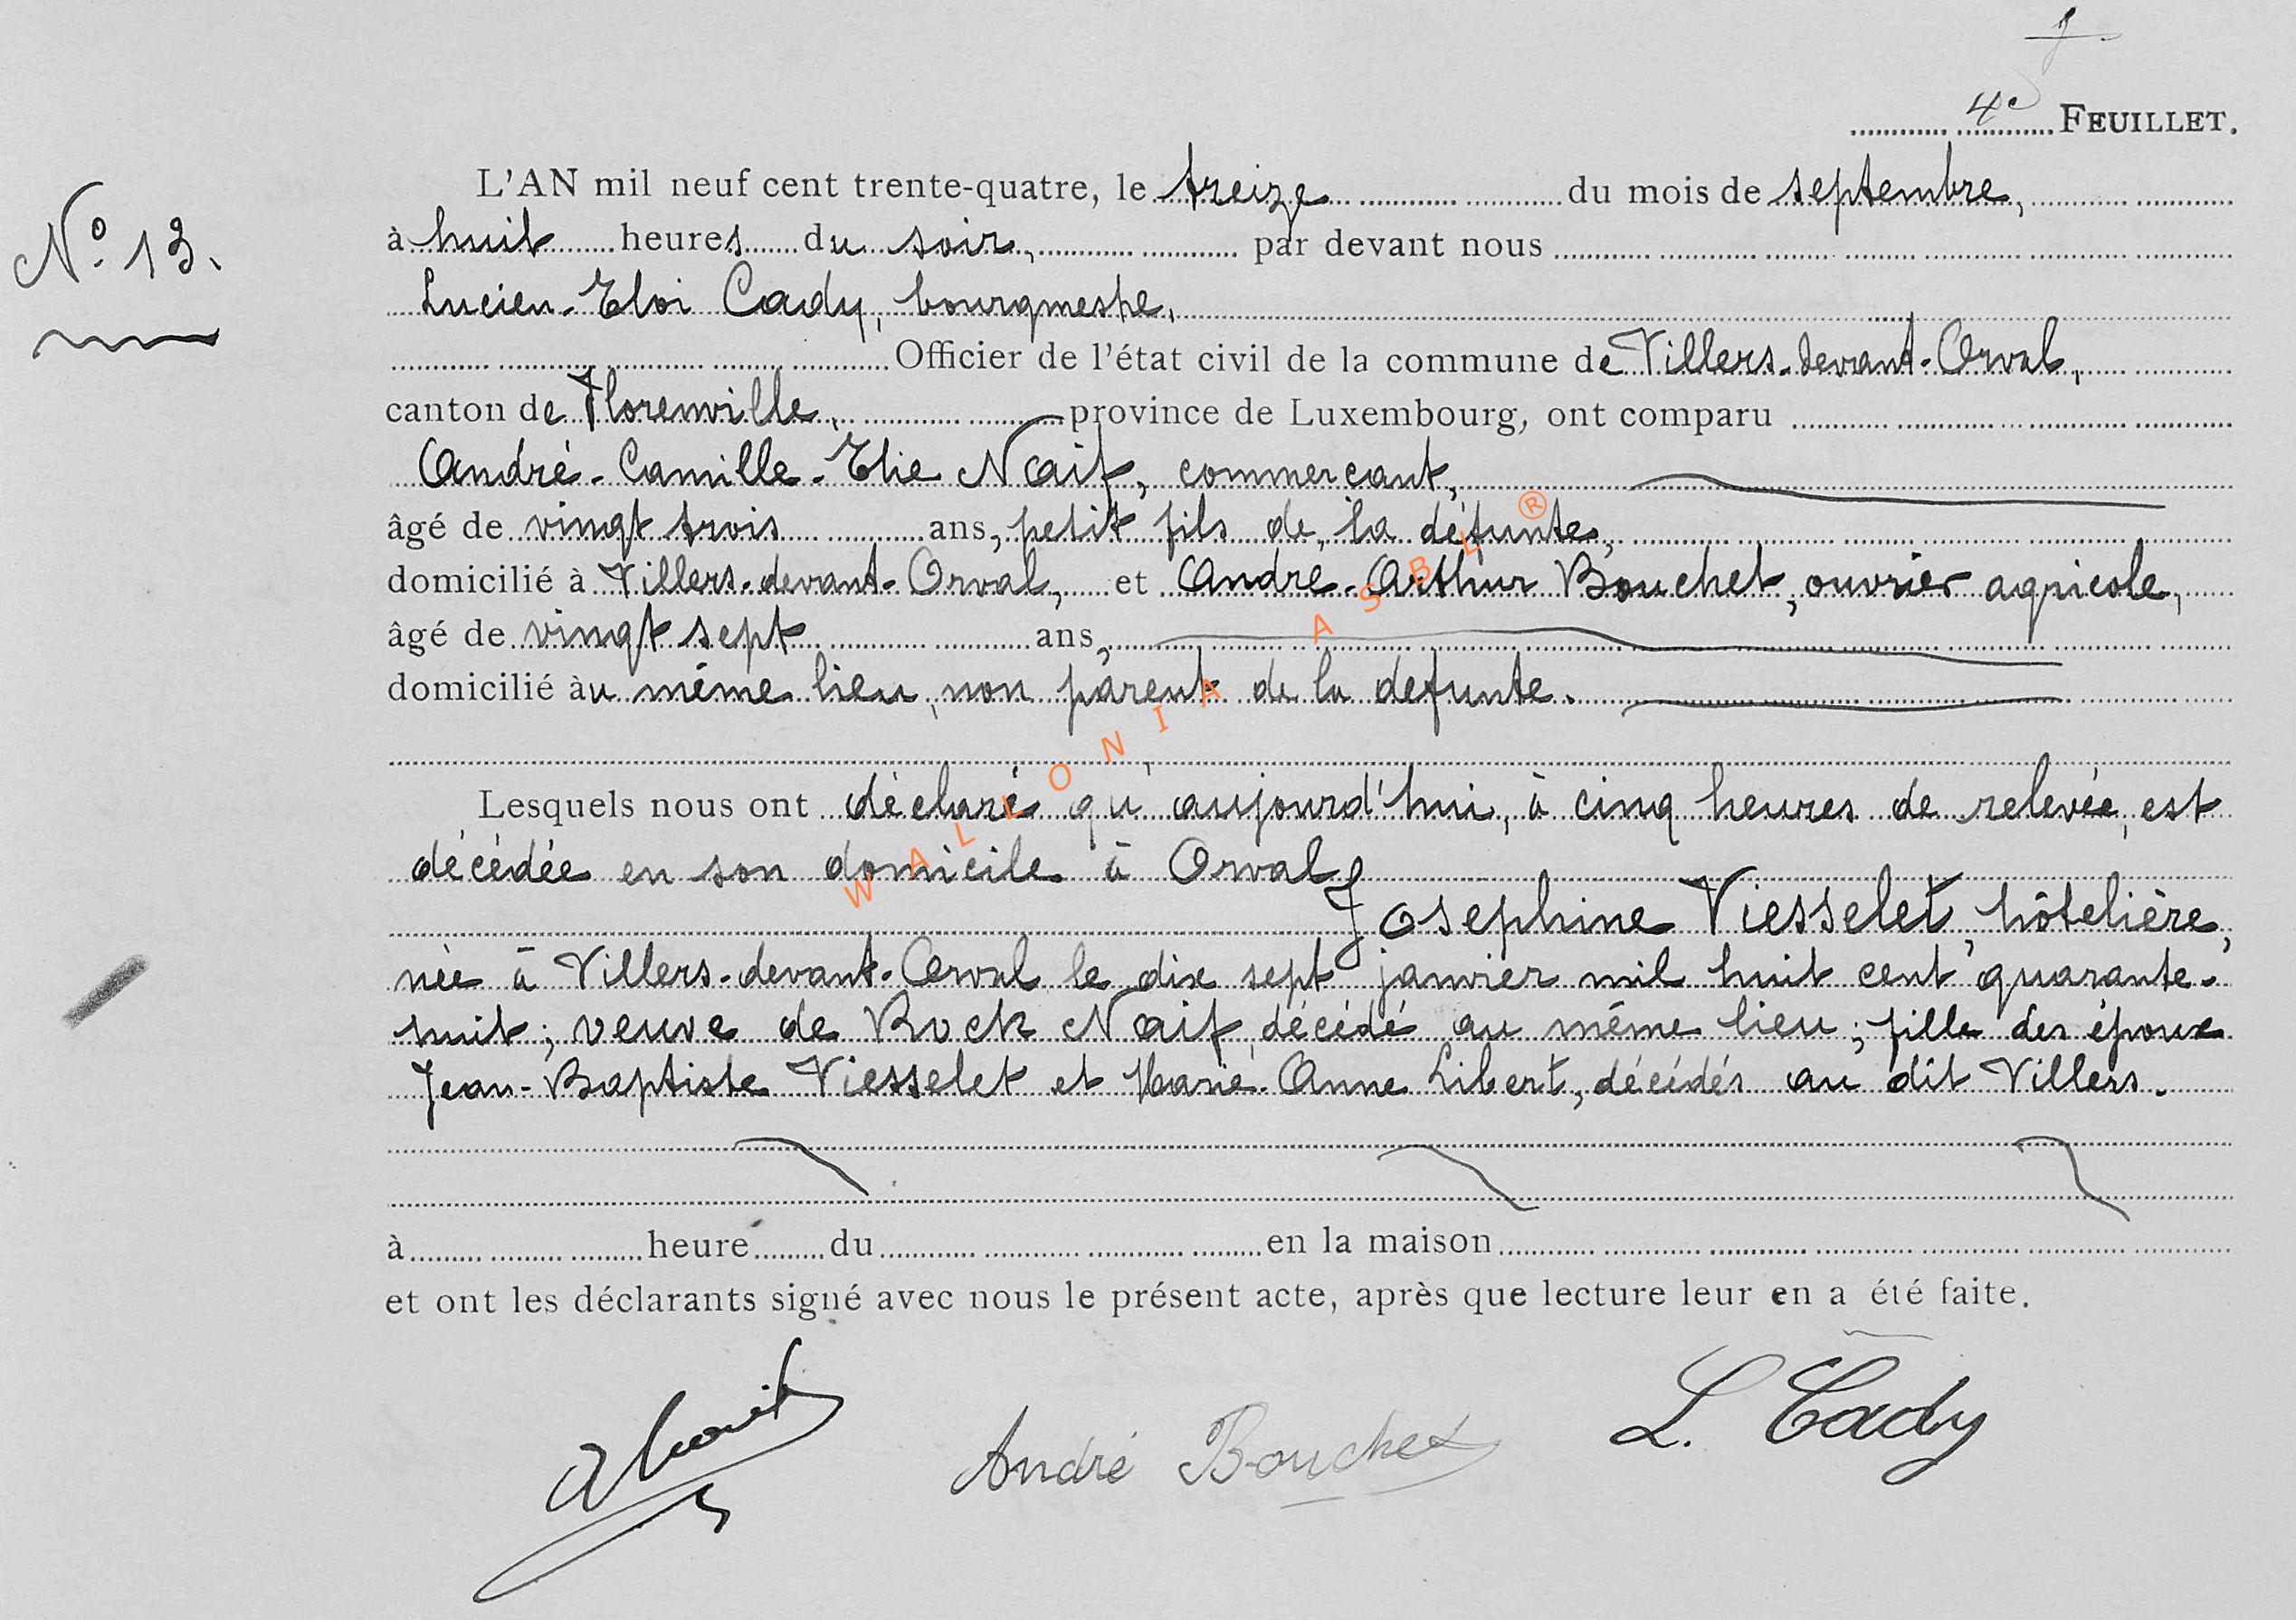 4e FEUILLET.
L'AN mil neuf cent trente-quatre, le treize du mois de septembre,
No. 13.
à huit heures du soir, par devant nous
Lucien-Eloi Cady, bourgmestre,
Officier de l'état civil de la commune de Villers-devant-Orval,
canton de Florenville, province de Luxembourg, ont comparu
André-Camille-Elie Naif, commerçant,
âgé de vingt trois ans, petit fils de la défunte,
domicilié à Villers-devant-Orval, et André-Arthur Bouchet, ouvrier agricole,
âgé de vingt sept ans,
domicilié au même lieu, non parent de la defunte.
Lesquels nous ont déclaré qu'aujourd'hui, à cinq heures de relevée, est
décédée en son domicile à Orval,
Josephine Viesselet, hôtelière,
née à Villers-devant-Orval le dix sept janvier mil huit cent quarante-
huit; veuve de Rock Naif, décédé au même lieu; fille des époux
Jean-Baptiste Viesselet et Marie-Anne Libert, décédés au dit Villers.
à heure du en la maison
et ont les déclarants signé avec nous le présent acte, après que lecture leur en a été faite.
A Naif André Bouchet L. Cady
WALLONIA ASBL ®